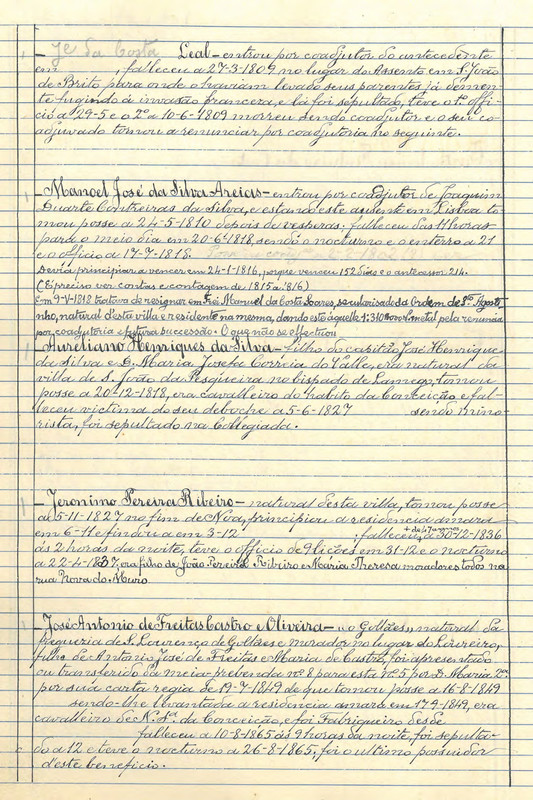 Jé da Costa Leal - entrou por coadjutor do antecedente
em , falleceu a 27-3-1809 no lugar do Assento em S. João
de Brito para onde o haviam levado seus parentes já demen-
te fugindo á invasão franceza, e lá foi sepultado, teve o 1º offi-
cio a 29-5 e o 2º a 10-6-1809 morreu sendo coadjutor e o seu co-
adjuvado tornou a renunciar por coadjutoria no seguinte.
Manoel José da Silva Areias - entrou por coadjutor de Joaquim
Duarte Contreiras da Silva, e estando este ausente em Lisboa to-
mou posse a 24-5-1810 depois de vesperas: falleceu ás 11 horas
para o meio dia em 20-6-1818, sendo o nocturno e o enterro a 21
e o officio a 17-7-1818.
Devia principiar a vencer em 24-1-1816, porque venceu 152 dias e o antecessor 214.
(É preciso ver contas e contagem de 1815 a 816)
Em 9-V-1818 tratava de resignar em Frei Manuel da Costa Soares, secularisado da Ordem de Stº Agosti-
nho, natural d'esta villa e residente na mesma, dando este áquelle metal pela renuncia
por coadjutoria e futura successão. O que não se effectuou
Aureliano Henriques da Silva - filho do capitão José Henriques
da Silva e D. Maria Josefa Correia do Valle, era natural da
villa de S. João da Pesqueira no bispado de Lamego, tomou
posse a 20-12-1818, era cavalleiro do habito da Conceição e fal-
leceu victima do seu deboche a 5-6-1827 sendo mino-
rista, foi sepultado na Collegiada.
Jeronimo Pereira Ribeiro - natural desta villa, tomou posse
a 5-11-1827 no fim de Nôa, principiou a residencia amara
em 6-11 e findou a em 3-12 . falleceu, + de 47 annos a 30-12-1836
ás 2 horas da noite, teve o officio de 9 lições em 31-12 e o nocturno
a 22-4-1837, era filho de João Pereira Ribeiro e Maria Theresa moradores todos na
rua Nova do Muro
José Antonio de Freitas Castro e Oliveira - «o Gollães», natural da
freguezia de S. Lourenço de Gollães e morador no lugar do Loureiro,
filho de Antonio José de Freitas e Maria de Castro, foi apresentado
ou transferido da meia-prebenda nº 8 para esta nº 5 por D. Maria 2ª
por sua carta regia de 19-7-1849 de que tomou posse a 16-8-1849
sendo-lhe levantada a residencia amara em 17-9-1849, era
cavalleiro de N. Sª. da Conceição, e foi Fabriqueiro desde
falleceu a 10-8-1865 ás 9 horas da noite, foi sepulta-
do a 12 e teve o nocturno a 26-8-1865, foi o ultimo possuidor
d'este beneficio.